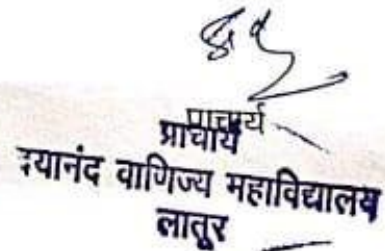 प्राचार्य
प्राचार्य
दयानंद वाणिज्य महाविद्यालय
लातूर